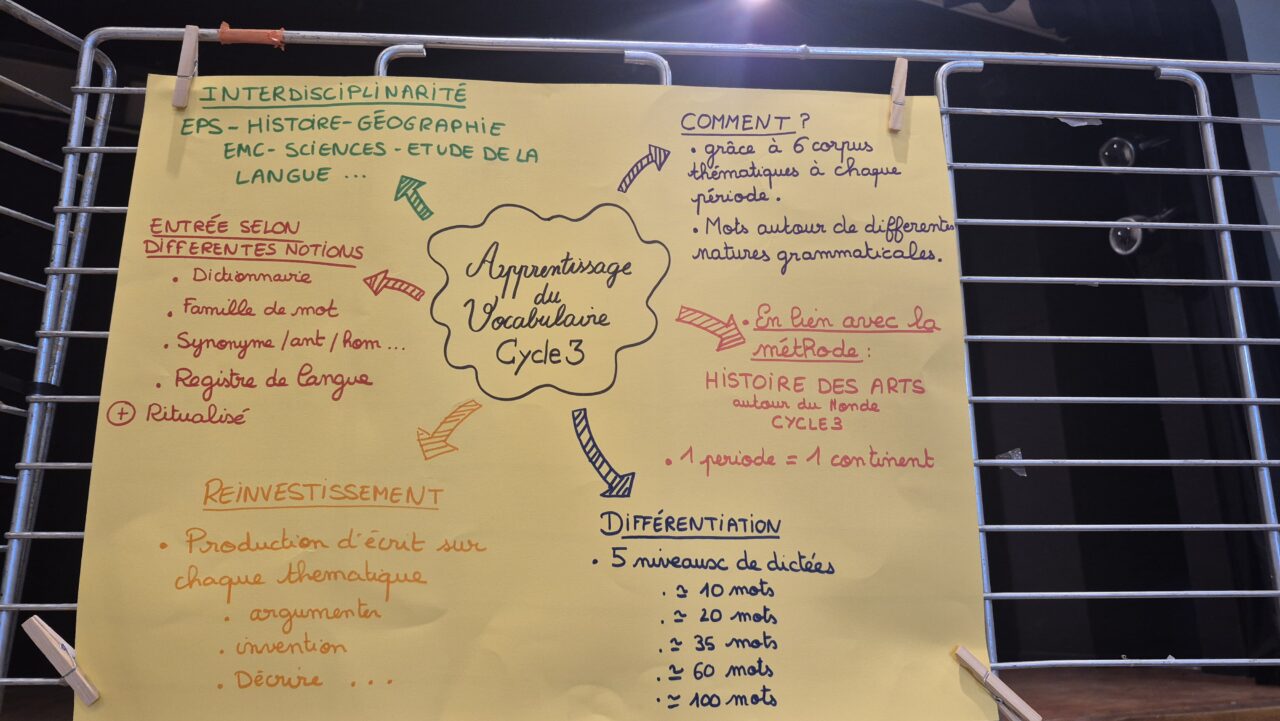 INTERDISCIPLINARITÉ
EPS - HISTOIRE - GÉOGRAPHIE
EMC - SCIENCES - ETUDE DE LA
LANGUE ...
COMMENT ?
. grâce à 6 corpus
thématiques à chaque
période.
. Mots autour de differentes
natures grammaticales.
ENTRÉE SELON
DIFFERENTES NOTIONS
. Dictionnaire
. Famille de mot
. Synonyme / ant / hom ...
. Registre de langue
+ Ritualisé
Apprentissage
du
Vocabulaire
Cycle 3
. En lien avec la
méthode :
HISTOIRE DES ARTS
autour du Monde
CYCLE 3
. 1 periode = 1 continent
REINVESTISSEMENT
. Production d'écrit sur
chaque thematique
. argumenter
. invention
. Décrire ...
DIFFÉRENTIATION
. 5 niveaux de dictées
. ≃ 10 mots
. ≃ 20 mots
. ≃ 35 mots
. ≃ 60 mots
. ≃ 100 mots